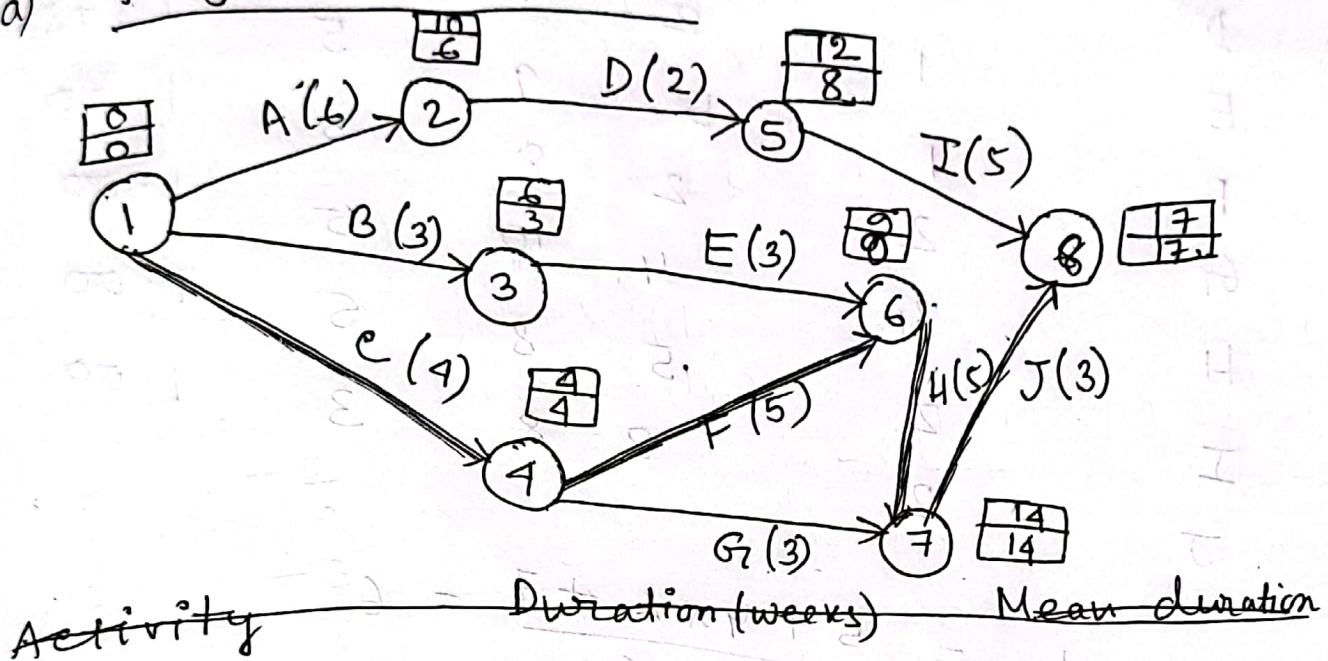 a)
10
6
12
8
0
0
A(6)
2
D(2)
5
I(5)
1
B(3)
6
3
3
E(3)
9
9
6
8
7
7
C(4)
4
4
4
F(5)
H(5)
J(3)
G(3)
7
14
14
Activity Duration (weeks) Mean duration